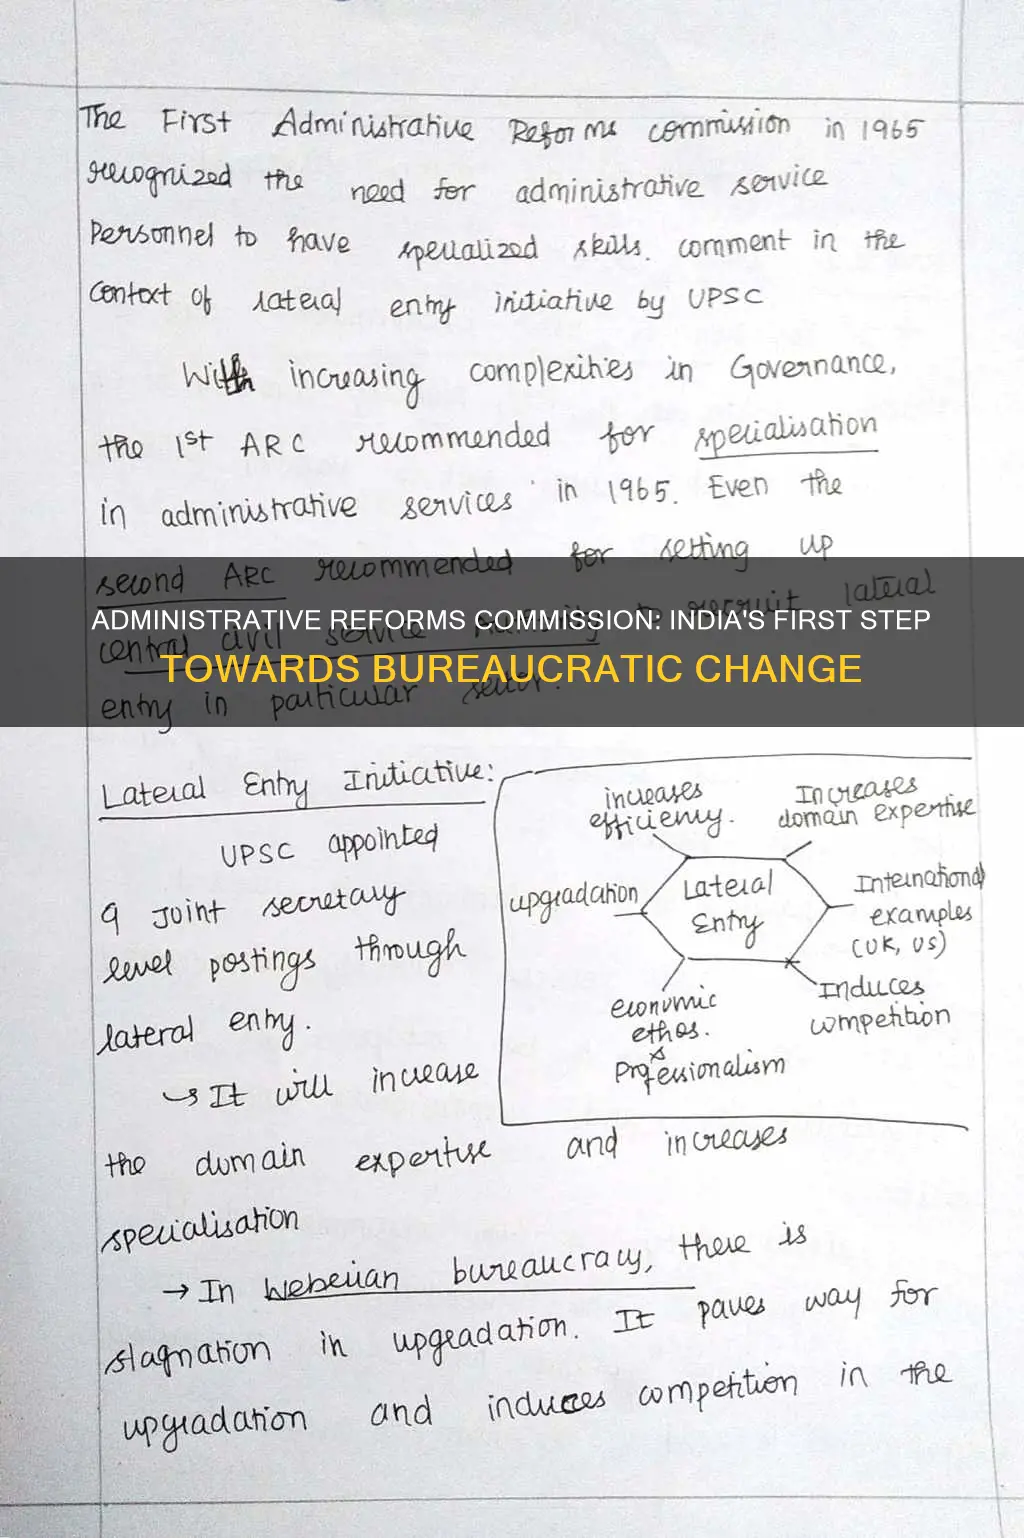 The First Administrative Reforms commission in 1965
recognized the need for administrative service
Personnel to have specialized skills. comment in the
context of lateral entry initiative by UPSC
With increasing complexities in Governance,
the 1st ARC recommended for specialisation
in administrative services in 1965. Even the
second ARC recommended for setting up
central civil service authority to recruit lateral
ADMINISTRATIVE REFORMS COMMISSION: INDIA'S FIRST STEP
TOWARDS BUREAUCRATIC CHANGE
entry in particular sector.
Lateral Entry Initiative:
UPSC appointed
9 Joint secretary
level postings through
lateral entry.
→ It will increase
increases
efficiency.
Increases
domain expertise
upgradation
Lateral
Entry
International
examples
(UK, US)
economic
ethos.
&
Professionalism
Induces
competition
the domain expertise and increases
specialisation
→ In Weberian bureaucracy, there is
stagnation in upgradation. It paves way for
upgradation and induces competition in the